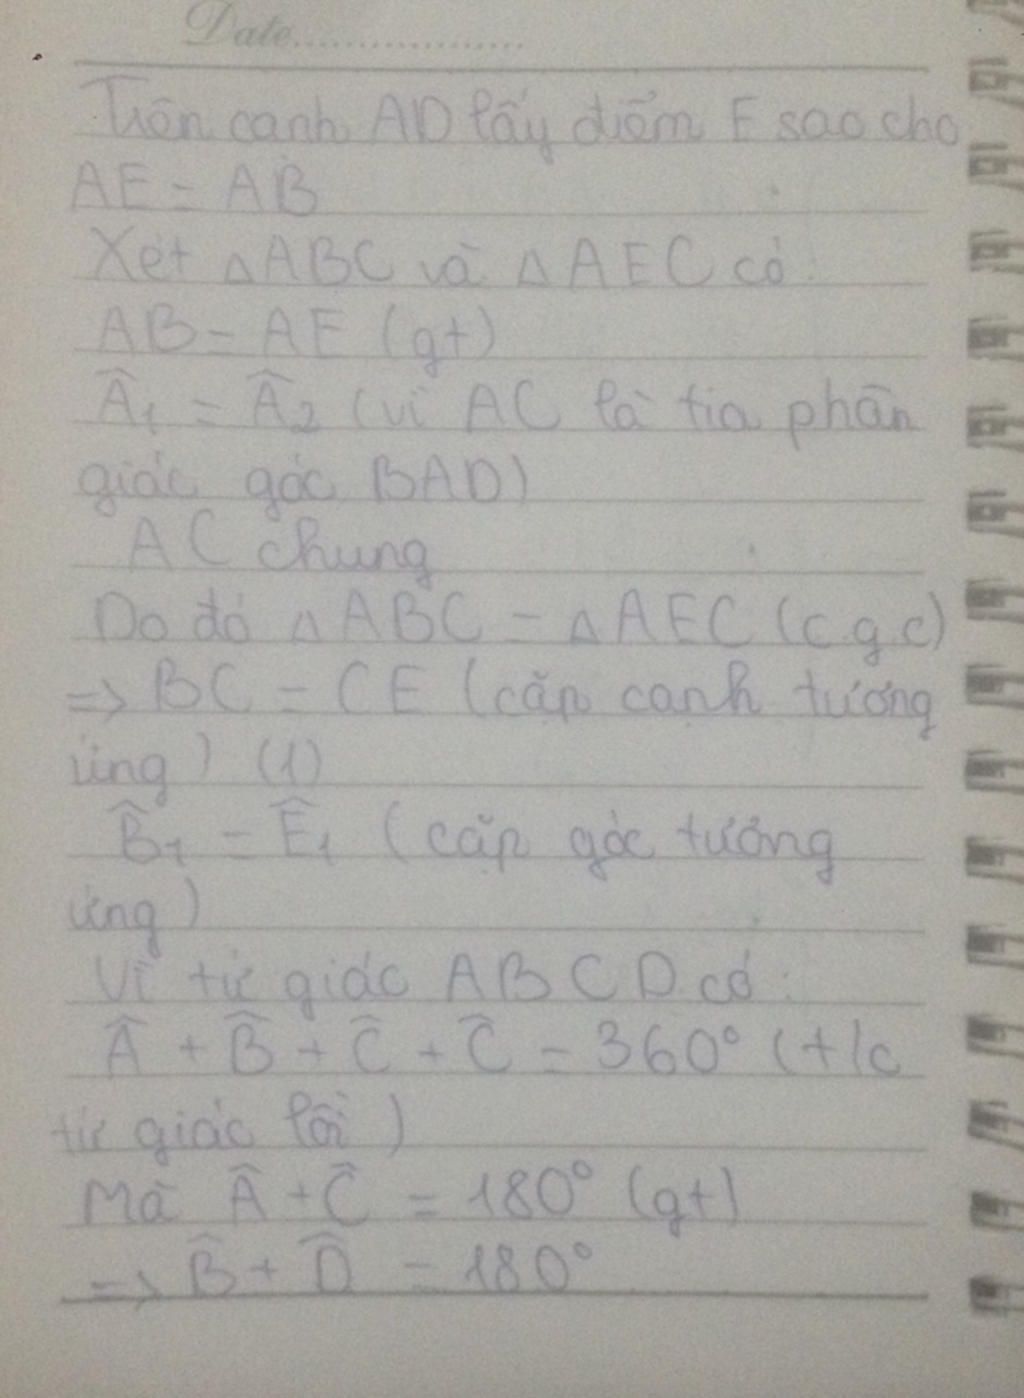 Date..................
Trên cạnh AD lấy điểm E sao cho
AE = AB
Xét △ABC và △AEC có:
AB = AE (gt)
Â₁ = Â₂ (vì AC là tia phân
giác góc BAD)
AC chung
Do đó △ABC = △AEC (c g.c)
=> BC = CE (cặp cạnh tương
ứng) (1)
B̂₁ = Ê₁ (cặp góc tương
ứng)
Vì tứ giác ABCD có:
Â + B̂ + Ĉ + Ĉ = 360° (t/c
tứ giác lồi)
Mà Â + Ĉ = 180° (gt)
=> B̂ + D̂ = 180°